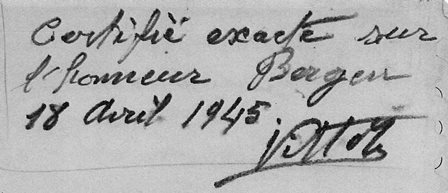 Certifié exacte sur
l'honneur Bergen
18 Avril 1945